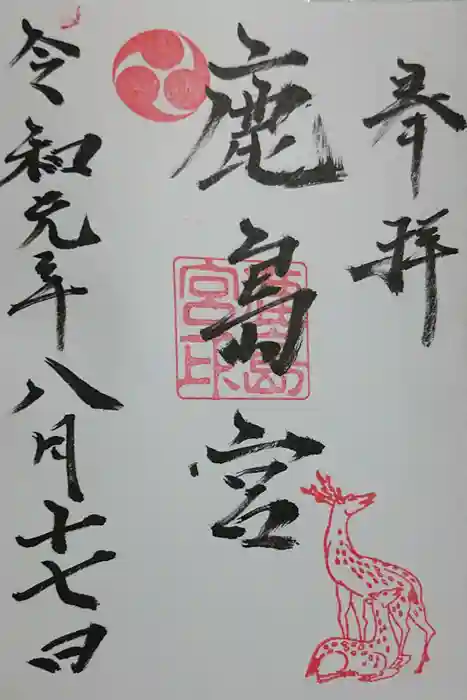 奉拝
鹿島宮
鹿島宮印
令和元年八月十七日